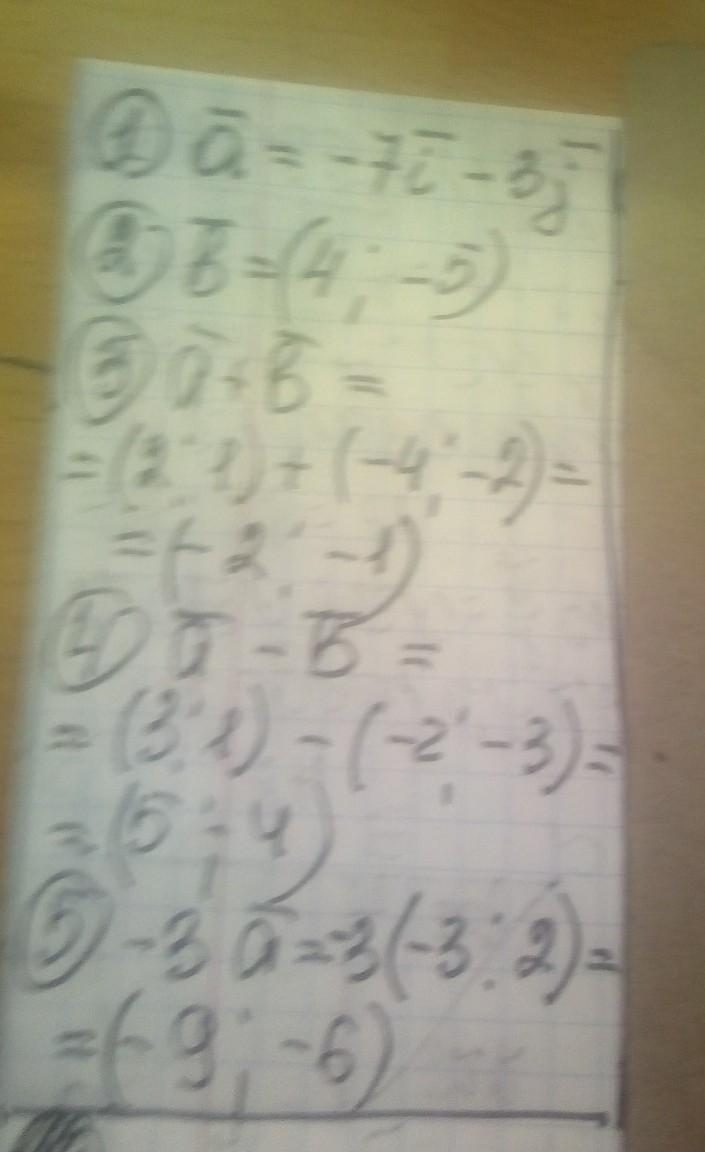 ① a̅ = -7i̅ - 3j̅
② b̅ = (4; -5)
③ a̅ + b̅ =
= (2; 1) + (-4; -2) =
= (-2; -1)
④ a̅ - b̅ =
= (3; 1) - (-2; -3) =
= (5; 4)
⑤ -3 a̅ = -3(-3; 2) =
= (-9; -6)